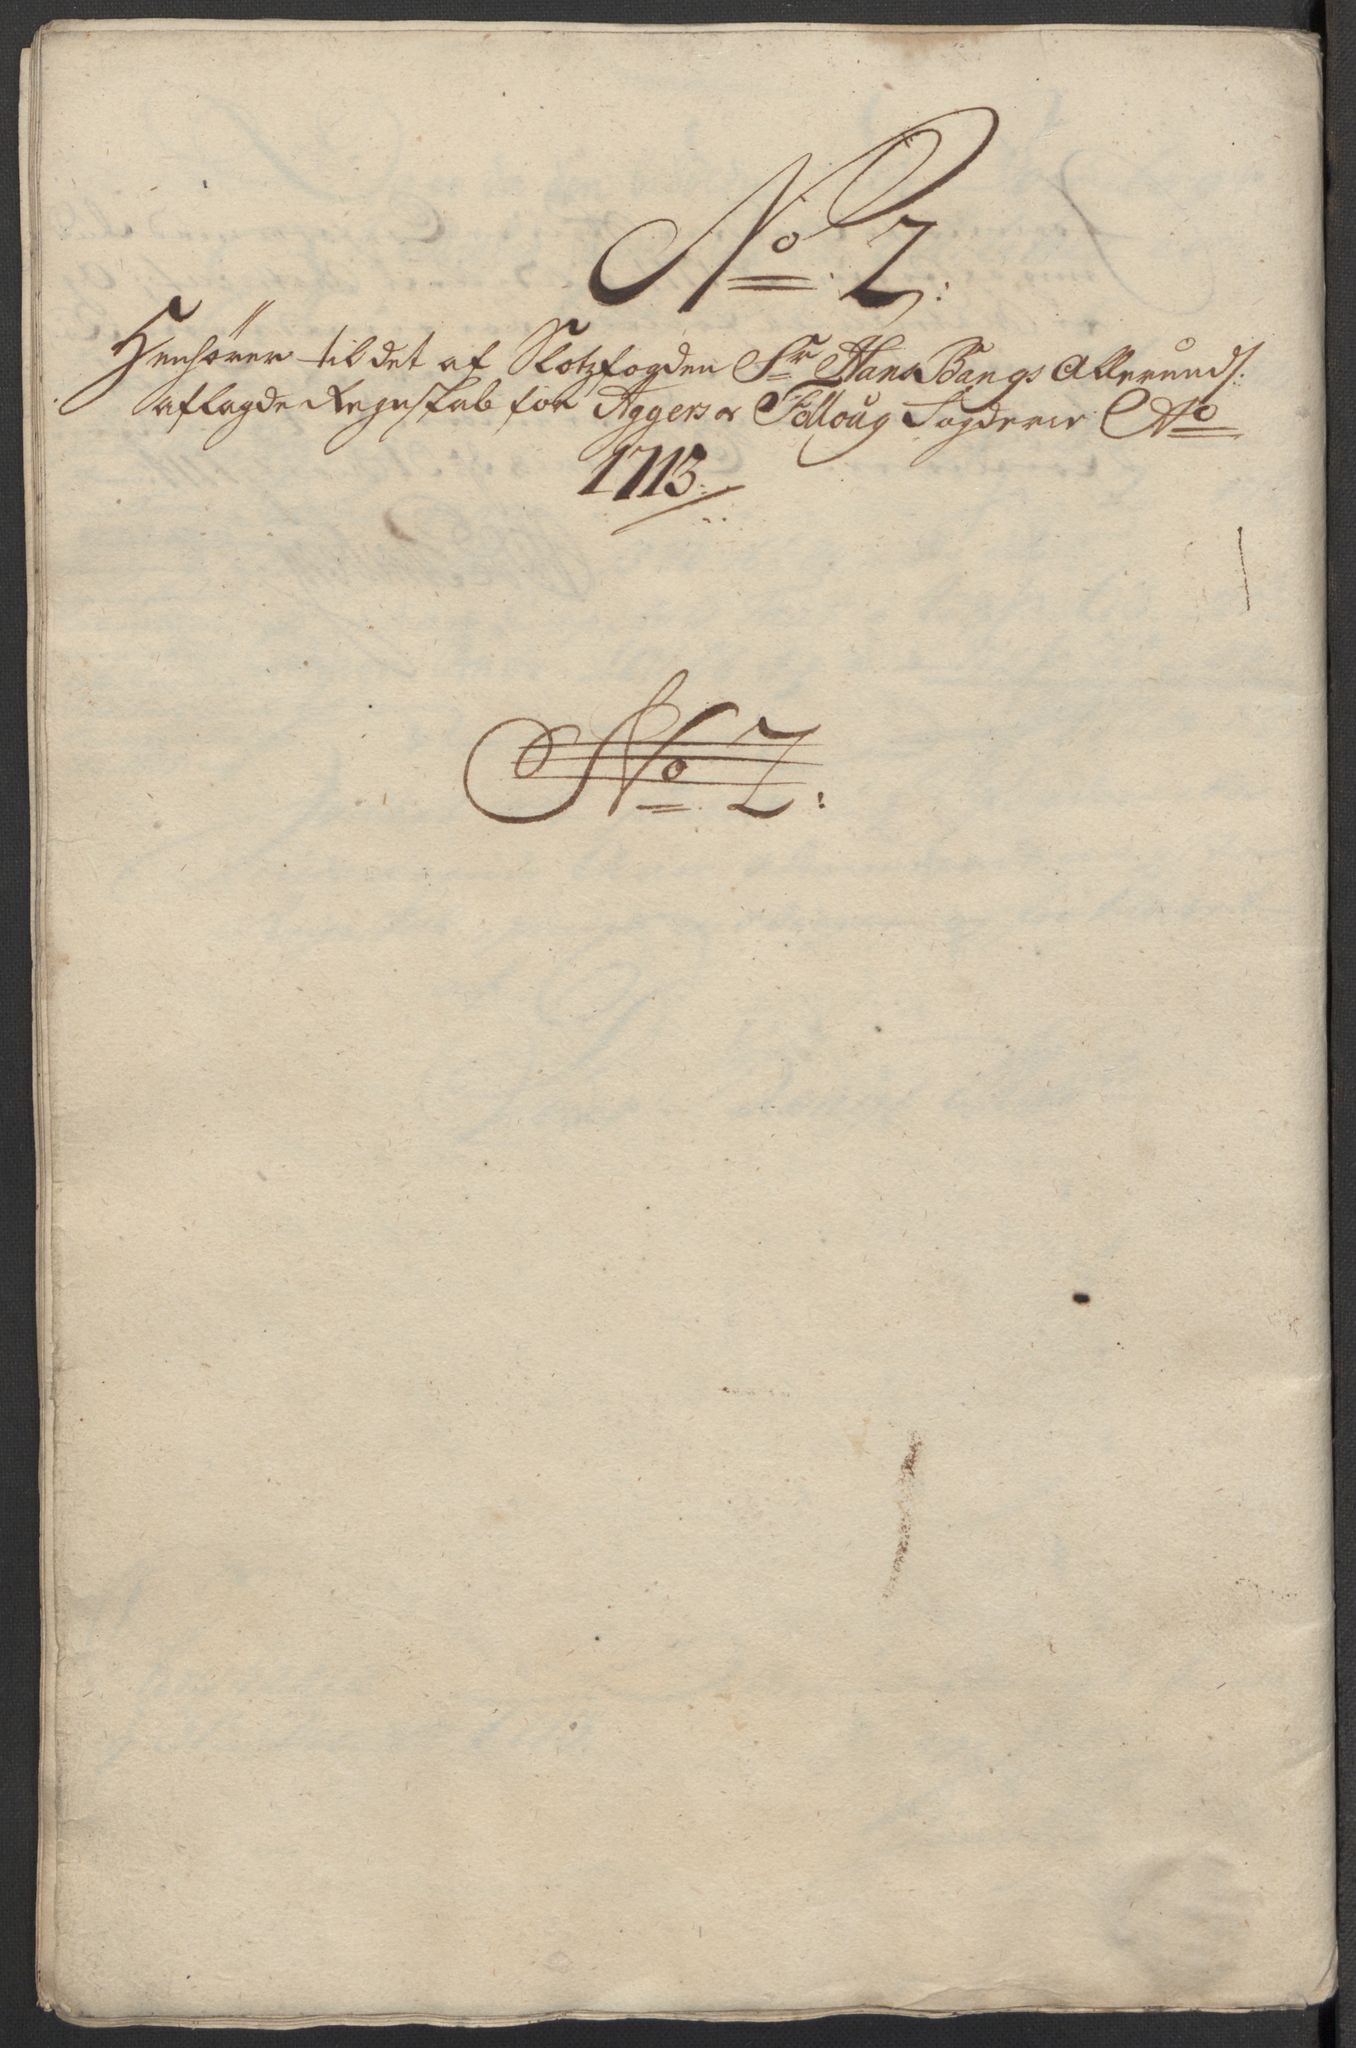 No. 2:
Henhører til det af Slotzfogden Sr Hans Bangs Allerunds:
aflagde Regnskab for Aggers og Folloug Fogderie Ao
1713.
No. 2: